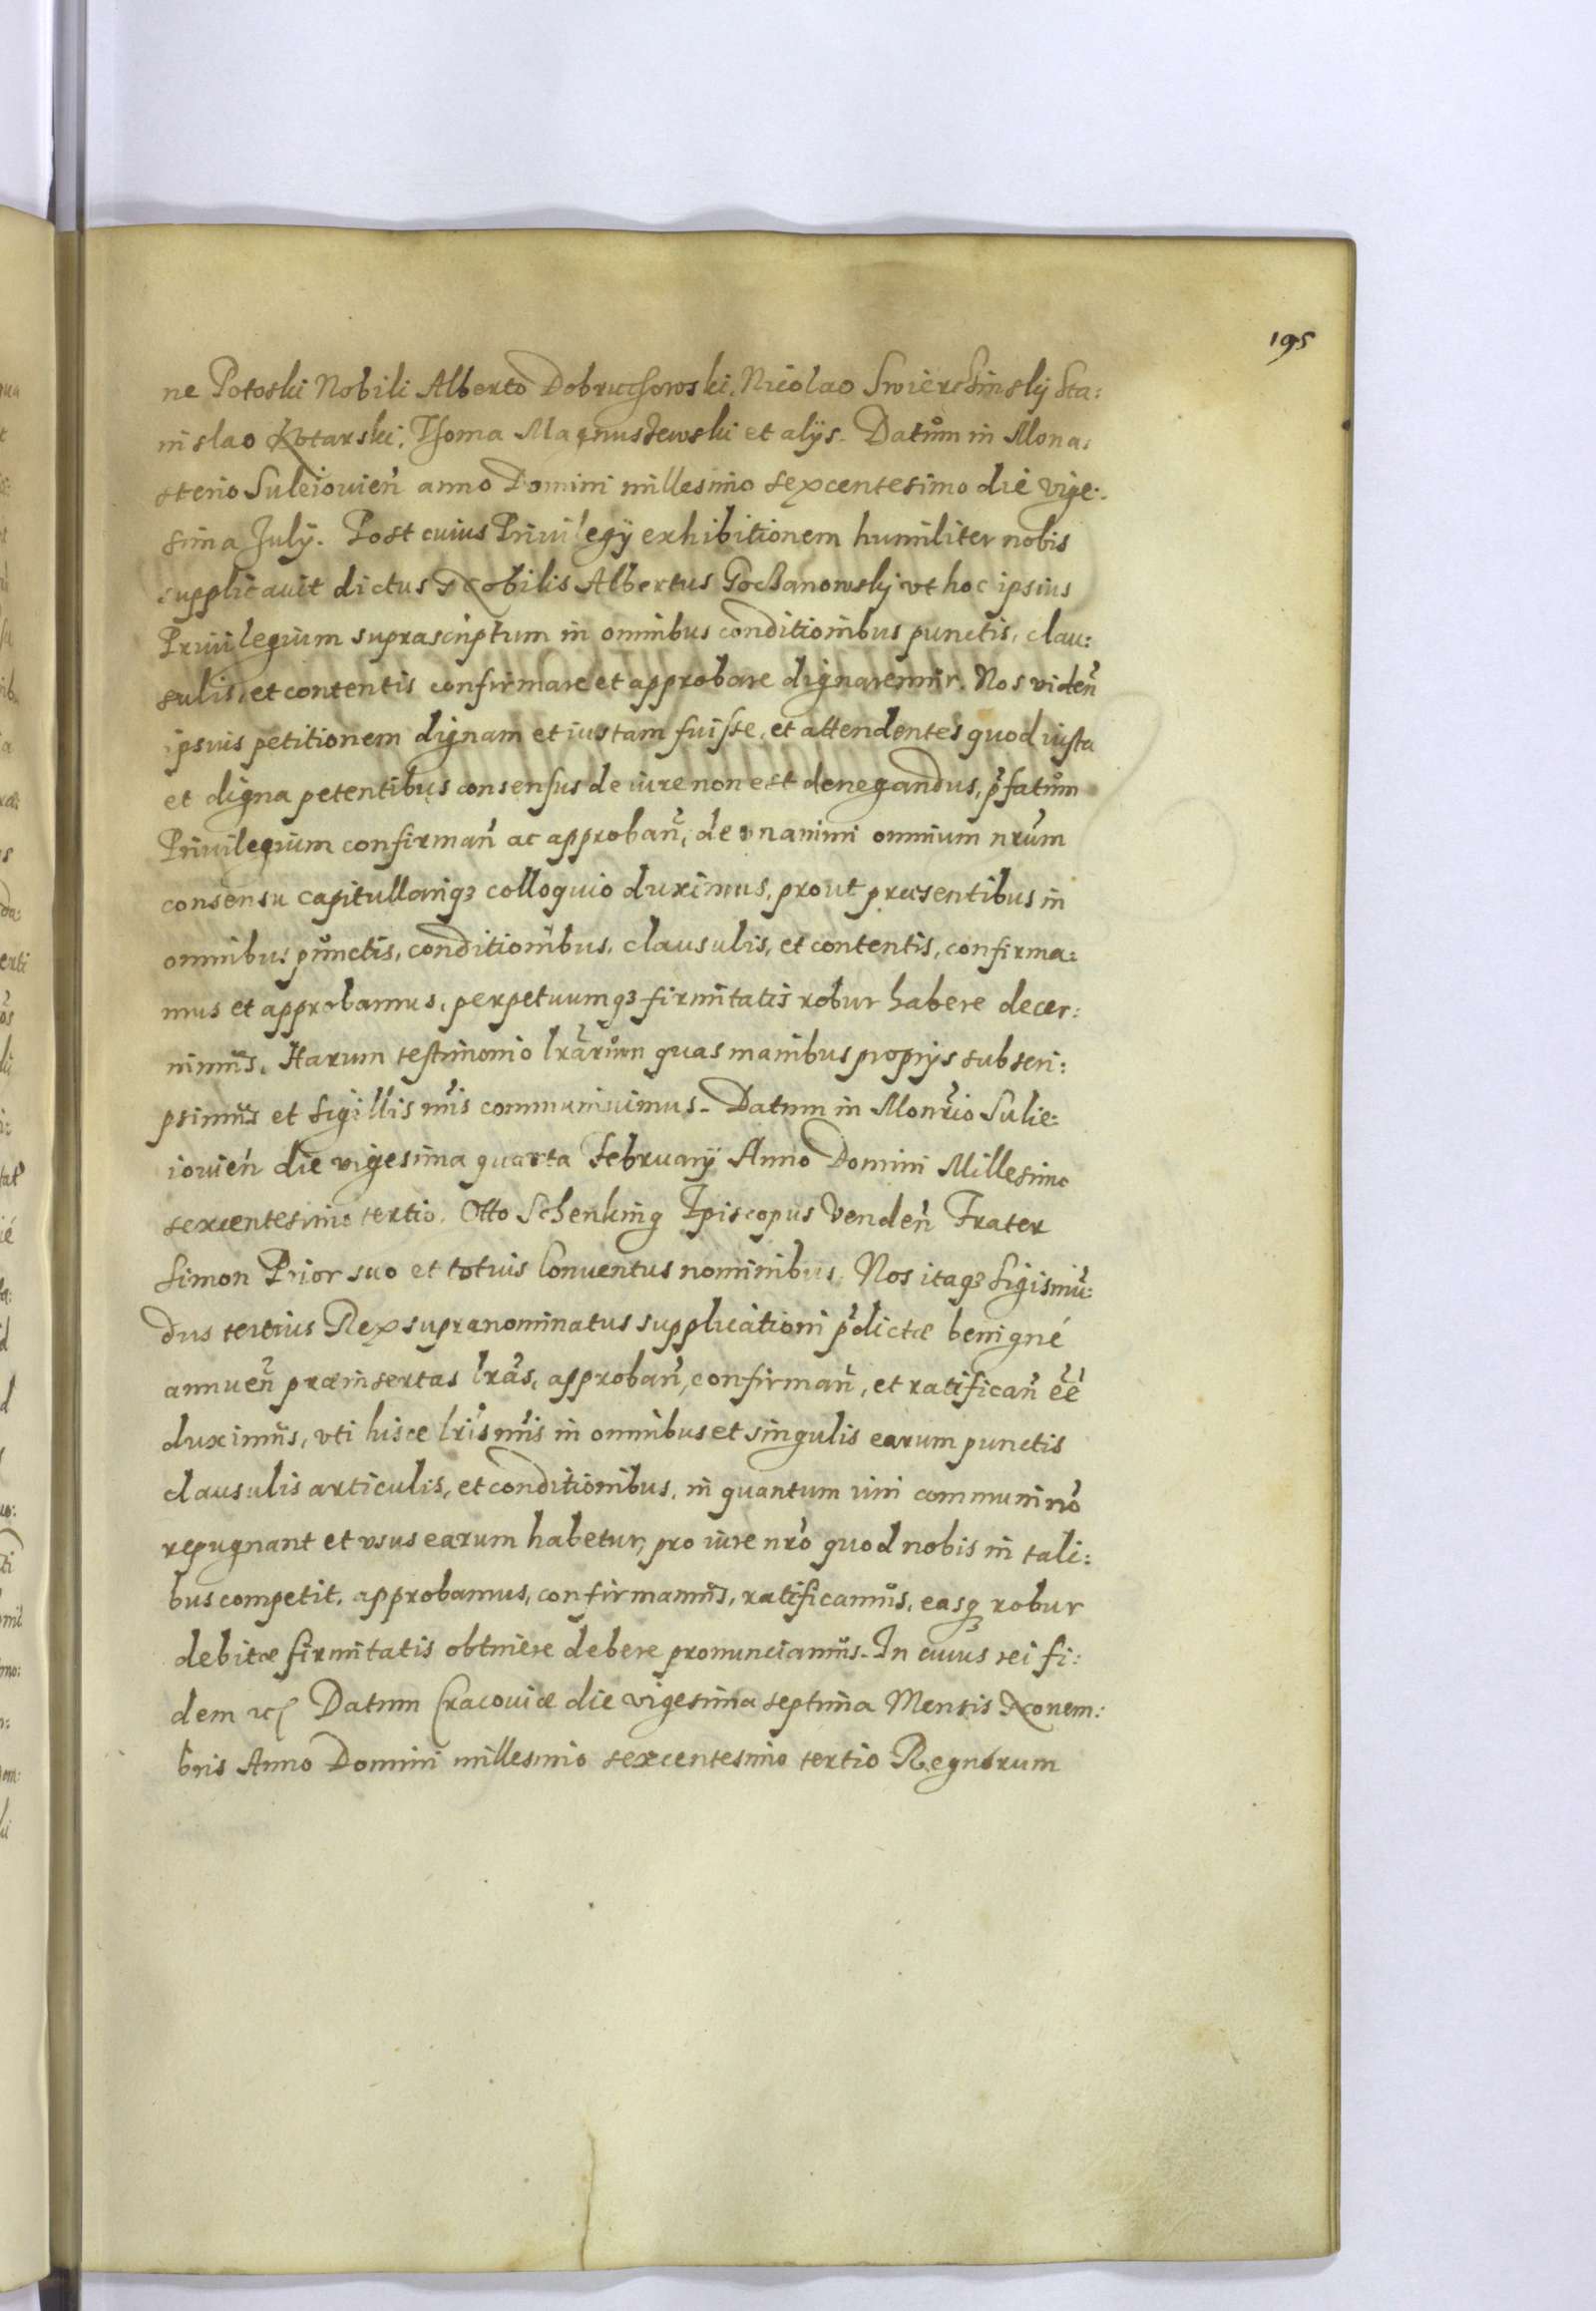 195
ne Potoski Nobili Alberto Dobruchowski, Nicolao Swierchinskij Sta:
nislao Kotarski, Thoma Magnuszewski et alijs. Datum in Mona:
sterio Suleiouien̄ anno Domini millesimo sexcentesimo die vige:
sima Julij. Post cuius Priuilegij exhibitionem humiliter nobis
supplicauit dictus Nobilis Albertus Goczanowskij vt hoc ipsius
Priuilegium suprascriptum in omnibus conditionibus punctis, clau:
sulis, et contentis confirmare et approbare dignaremur. Nos viden̄
ipsius petitionem dignam et iustam fuisse, et attendentes quod iusta
et digna petentibus consensus de iure non est denegandus, p̄fatum
Priuilegium confirman̄ ac approban̄, de vnanimi omnium nrūm
consensu capitullariq3 colloquio duximus, prout præsentibus in
omnibus punctis, conditionibus, clausulis, et contentis, confirma:
mus et approbamus, perpetuumq3 firmitatis robur habere decer:
nimus. Harum testimonio lrārum quas manibus proprijs subscri:
psimus et sigillis nr̄is communiuimus. Datum in Monrīo Sulie:
iouien̄ die vigesima quarta February Anno Domini Millesimo
sexcentesimo tertio. Otto Schenking Episcopus Venden̄ Frater
Simon Prior suo et totius Conuentus nominibus. Nos itaq3 Sigismū:
dus tertius Rex supranominatus supplicationi p̄dictæ benigné
annuen̄ præinsertas lrās, approban̄, confirman̄, et ratifican̄ eē
duximus, vti hisce lrīs nr̄is in omnibus et singulis earum punctis
clausulis articulis, et conditionibus, in quantum iuri communi nō
repugnant et vsus earum habetur, pro iure nrō quod nobis in tali:
bus competit, approbamus, confirmamus, ratificamus, easq3 robur
debitæ firmitatis obtinere debere pronunciamus. In cuius rei fi:
dem etc Datum Cracouiæ die vigesima septima Mensis Nouem:
bris Anno Domini millesimo sexcentesimo tertio Regnorum